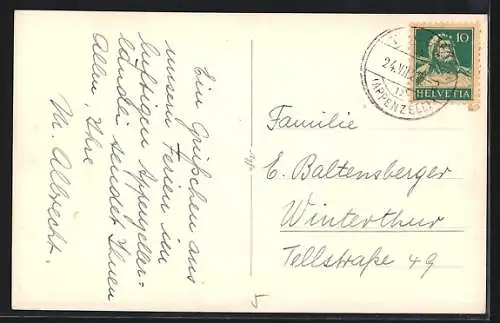 Ein Grüßchen aus
unsern Ferien im
luftigen Appenzeller-
ländli sendet Ihnen
Allen, Ihre
M. Albrecht.
10
HELVETIA
24.VII.
(APPENZELL)
Familie
E. Baltensberger
Winterthur
Tellstraße 49